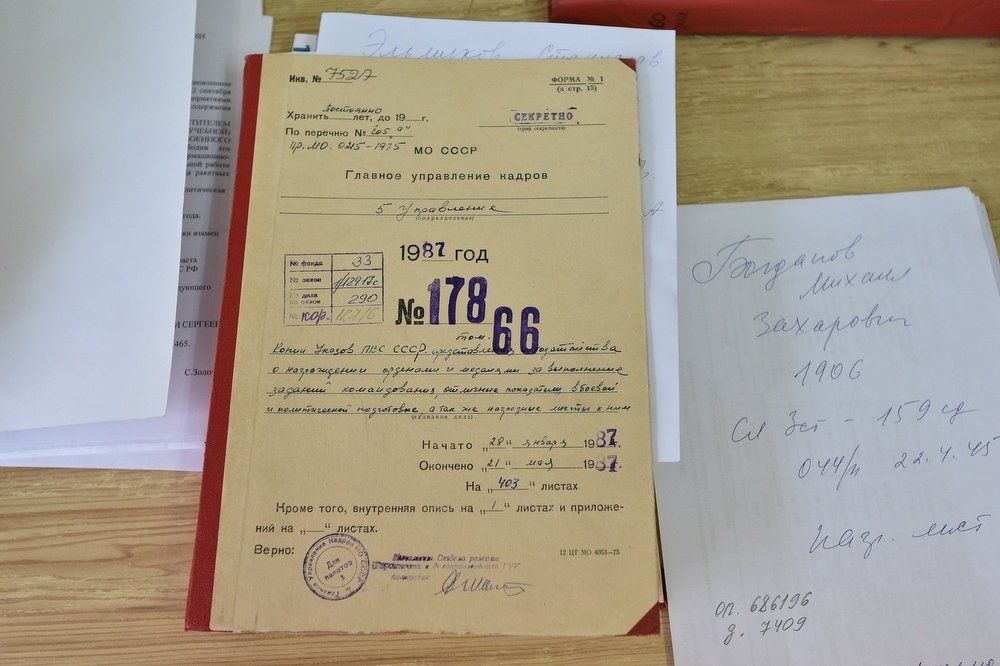 Эльмуков
Инв. № 7527
ФОРМА № 1
(к стр. 15)
Постоянно
Хранить лет, до 19 г.
СЕКРЕТНО
(гриф секретности)
По перечню № 205 „а"
Пр. МО. 0215-1975
МО СССР
Главное управление кадров
5 Управление
(подразделение)
1987 год
№ фонда 33
№ описи
№ дела по описи 290
№ кор.
№ 178
66
том.
Копии Указов ПВС СССР, ходатайства
о награждении орденами и медалями за выполнение
заданий командования, отличные показатели в боевой
и политической подготовке, а так же наградные листы к ним
(название дела)
Начато „28" января 1987.
Окончено „21" мая 1987.
На „403" листах
Кроме того, внутренняя опись на „1" листах и приложе-
ний на „ " листах.
Верно:
Главное Управление Кадров МО СССР
Для пакетов
3
Начальник Отдела режима
12 ЦТ МО 4063-75
Богданов
Михаил
Захарович
1906
Сл Зст - 159 сд
044/н 22.4.45
Наг. лист
оп. 686196
д. 7409
УЧЕБНОЙ)
ОЕННОГО
рмационно-
ной работе
а ракетных
литическая
года.
С РФ
дующего
И СЕРГЕЕ
465.
С.Золо